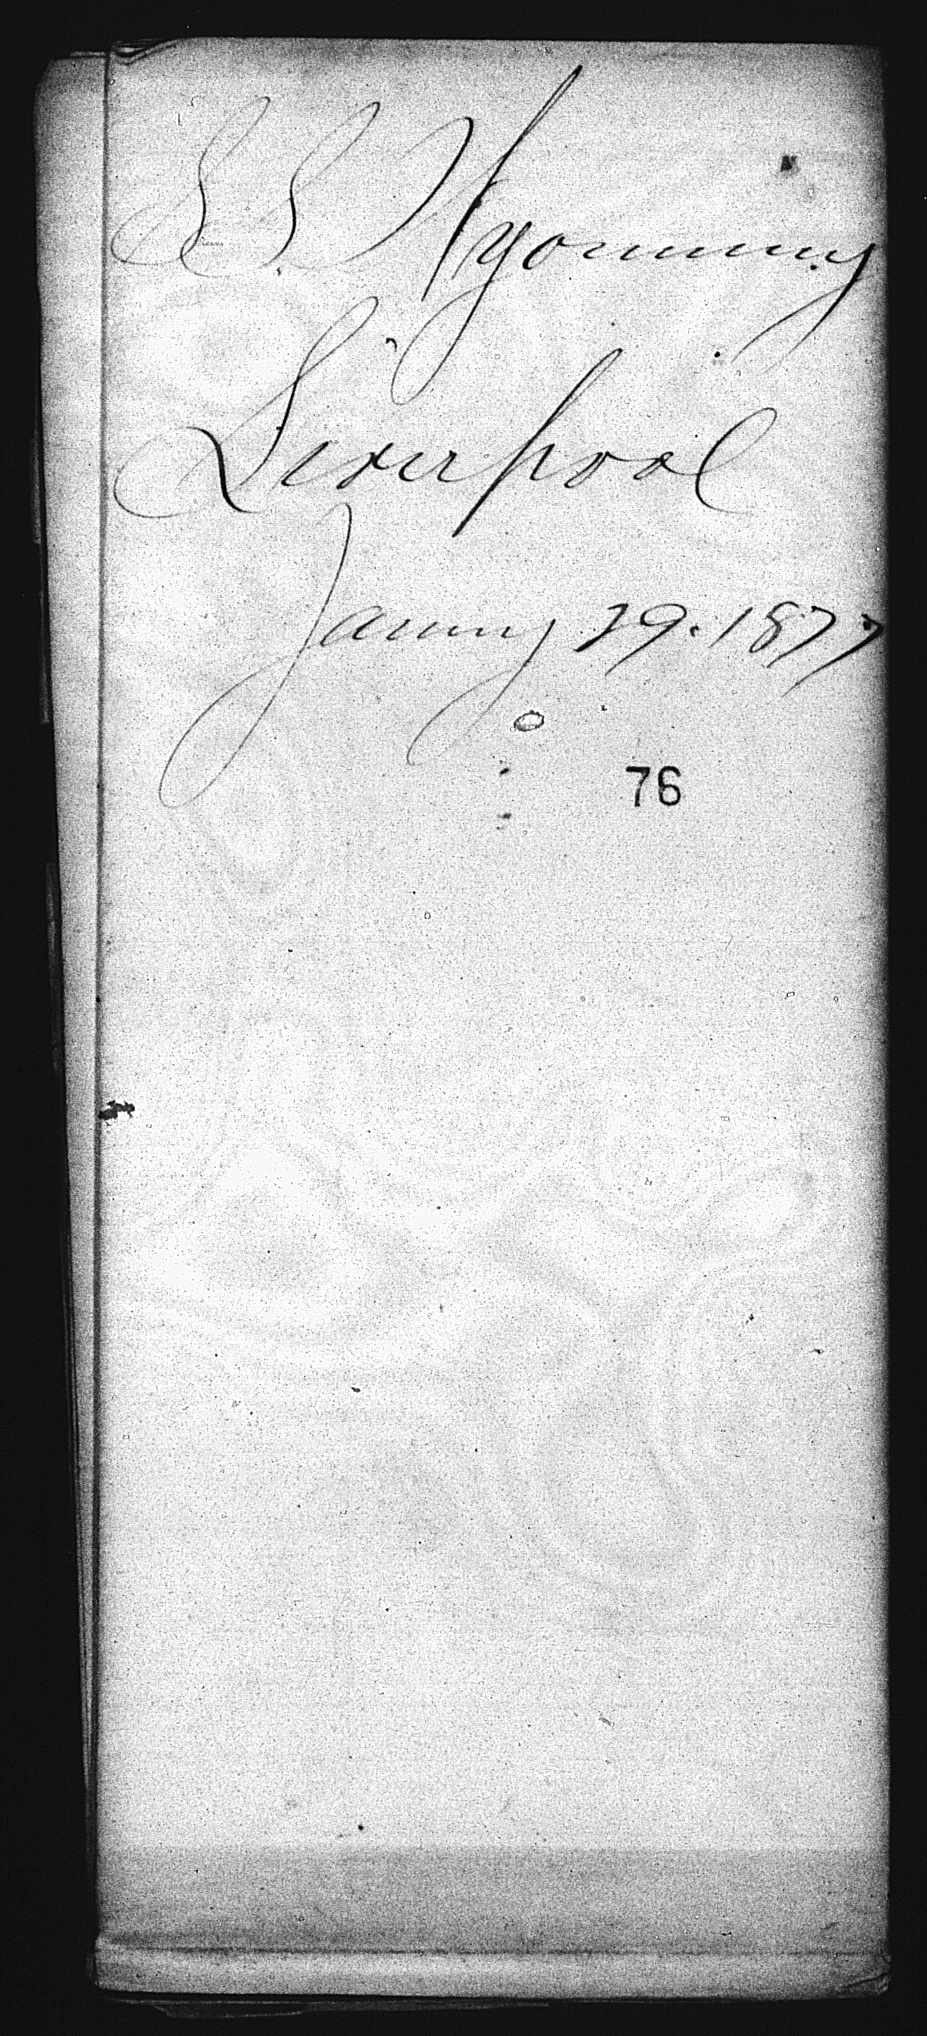 S.S. Wyoming
Liverpool
Janny 29. 1877
76